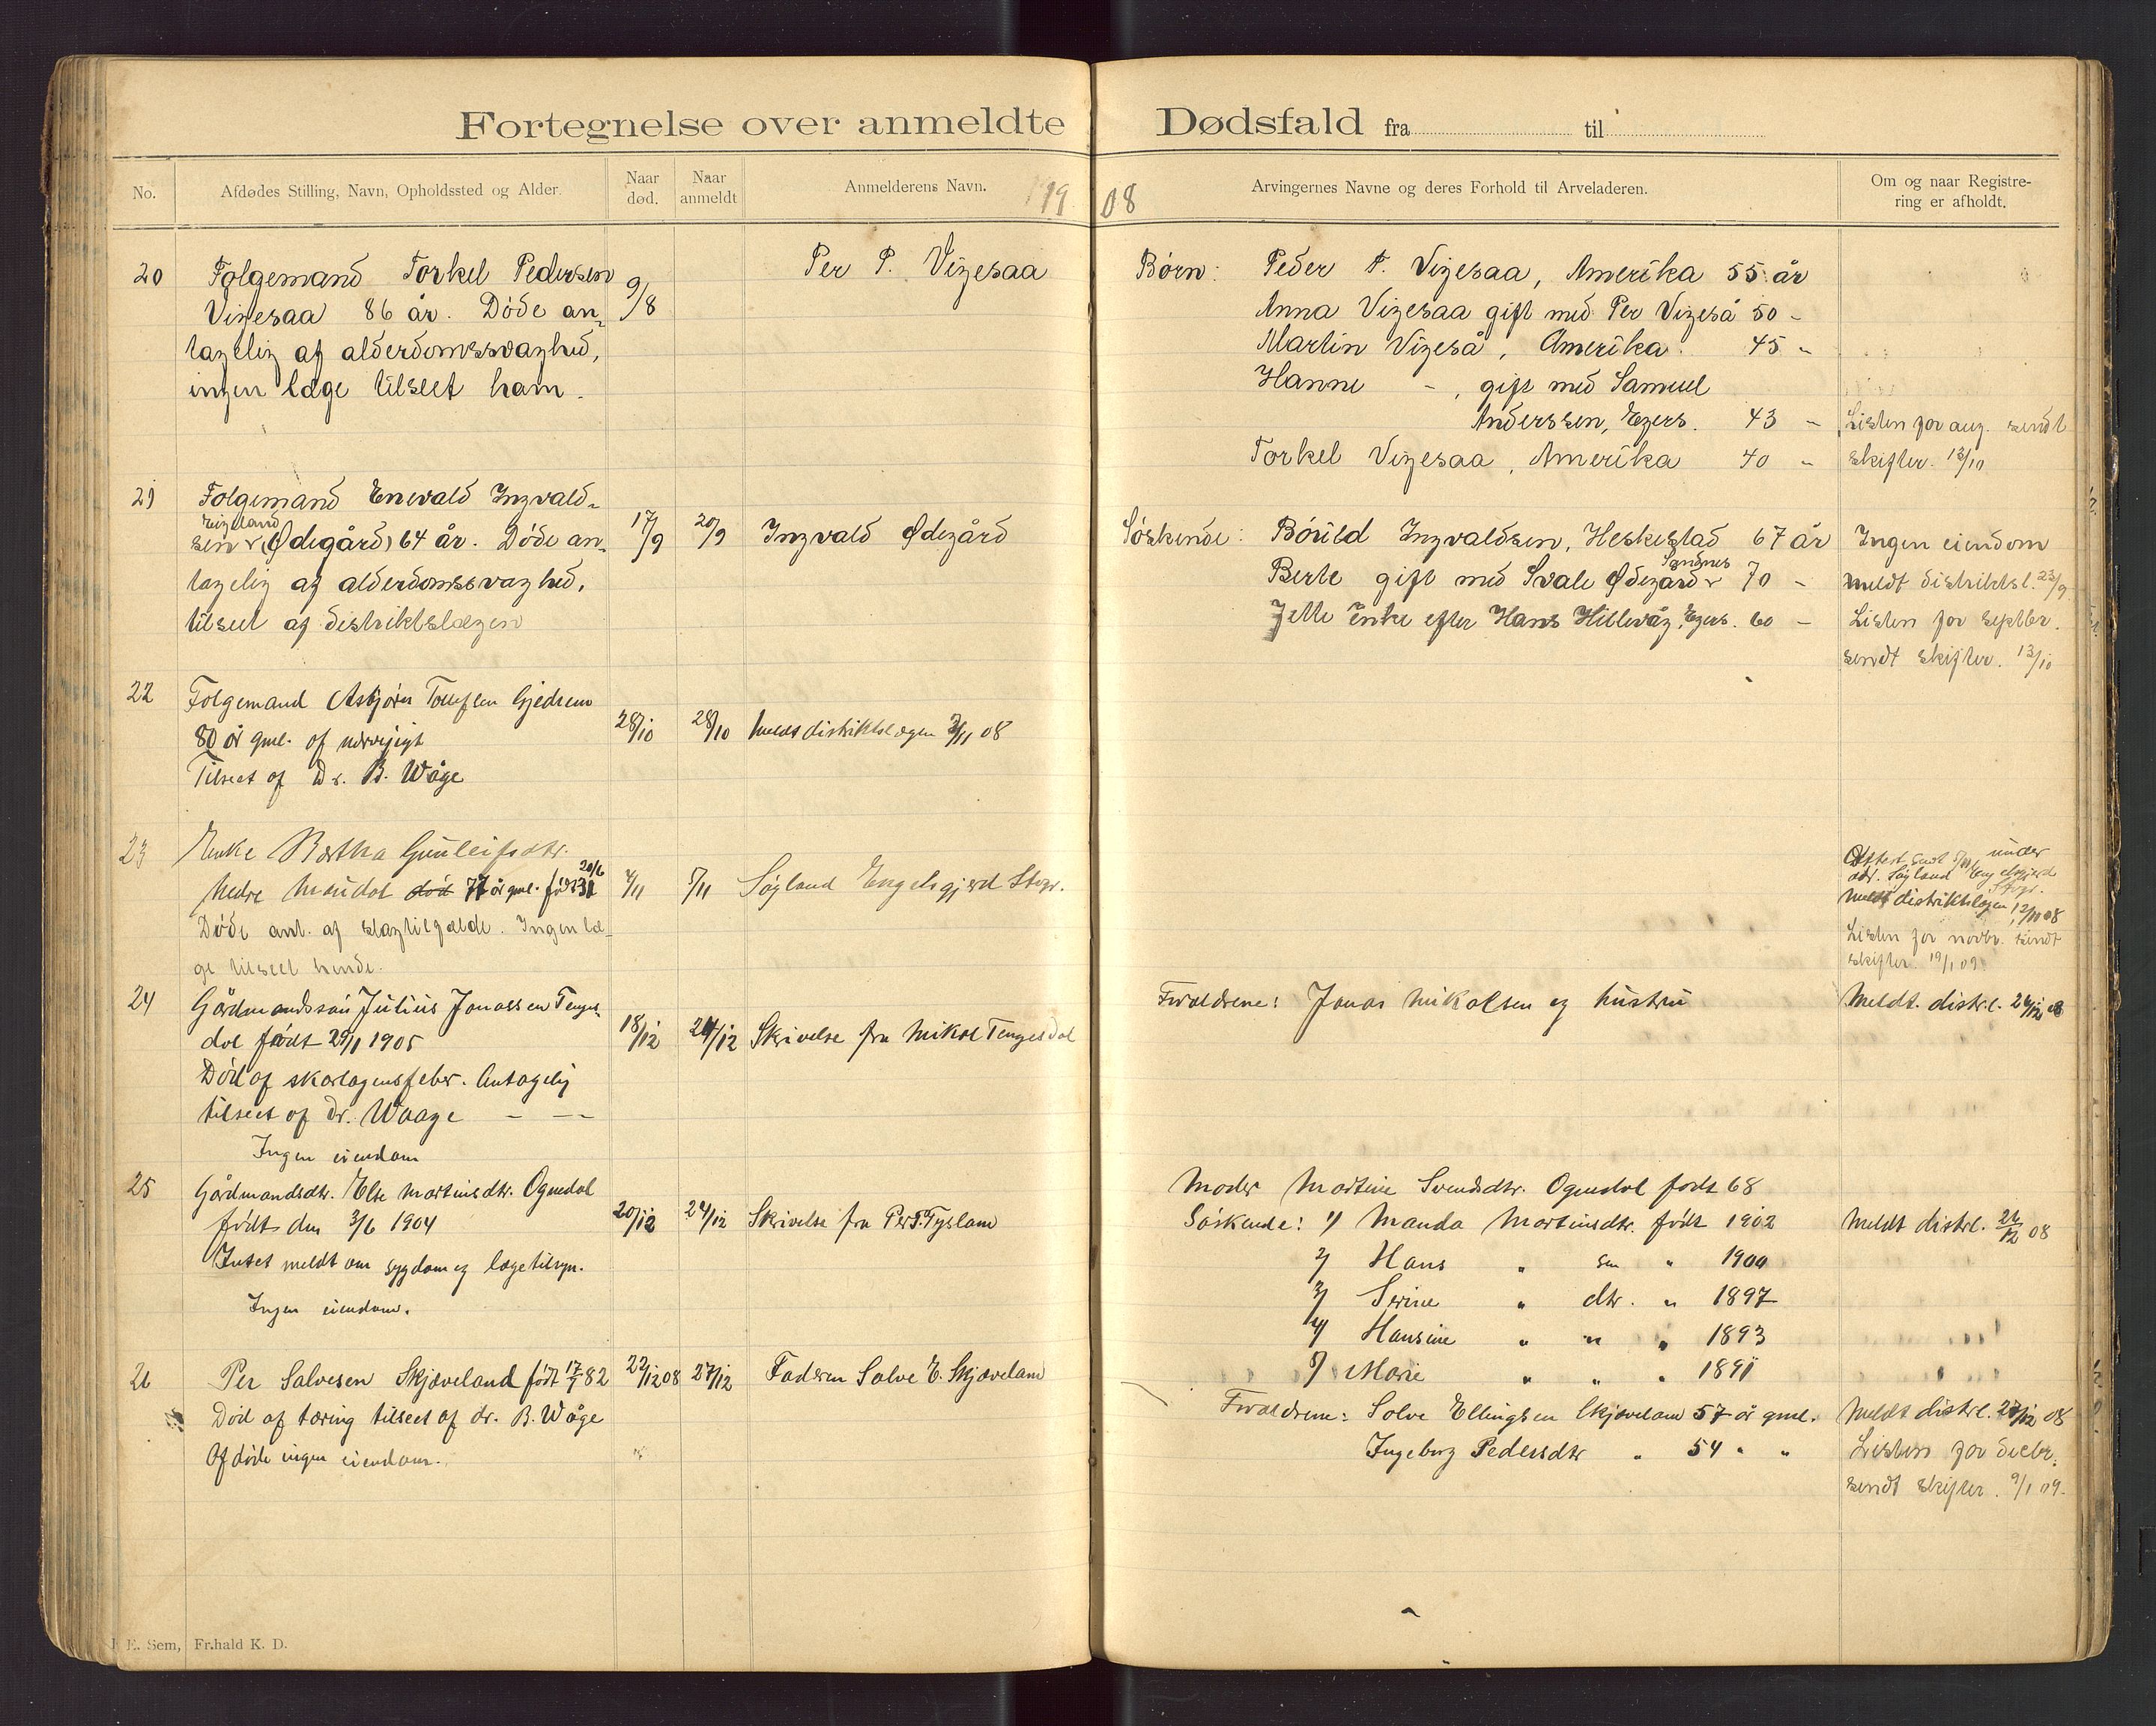 Fortegnelse over anmeldte Dødsfald fra til
No. Afdødes Stilling, Navn, Opholdssted og Alder. Naar død. Naar anmeldt Anmelderens Navn. 1908 Arvingernes Navne og deres Forhold til Arveladeren. Om og naar Registrering er afholdt.
20 Folgemand Torkel Pedersen
Vigesaa 86 år. Døde an-
tagelig af alderdomssvaghed,
ingen læge tilseet ham.
9/8
Per P. Vigesaa
Børn: Peder T. Vigesaa, Amerika 55 år
Anna Vigesaa gift med Per Vigeså 50 -
Martin Vigeså, Amerika. 45 -
Hanne - , gift med Samuel
Anderssen, Egers. 43 -
Torkel Vigesaa, Amerika 40 -
Listen for aug. sendt
skifter. 13/10
21 Folgemand Enevald Ingvald-
Eigeland
sen (Ødegård) 64 år. Døde an-
tagelig af alderdomssvaghed,
tilseet af distriktslægen
17/9 20/9 Ingvald Ødegård
Søskende: Børild Ingvaldsen, Heskestad 67 år
Sandnes
Berte gift med Svale Ødegård 70 -
Jette Enke efter Hans Hillevåg, Egers. 60 -
Ingen eiendom
meldt distriktsl. 23/9
Listen for septbr.
sendt skifter. 13/10
22 Folgemand Asbjørn Tollefsen Gjedrem
80 år gml. af
Tilseet af Dr. B. Wåge
28/10 28/10 Meldt distriktslægen 2/11 08
23 Enke Bertha Gunleifsdtr.
20/6
nedre Maudal død 77 år gml. født 31
Døde ant. af slagtilfælde. Ingen læ-
ge tilseet hende.
4/11 5/11 Søyland Engelsgjerd Stgr.
Attest sendt 5/11 under
adr. Søyland Engelsgjerd
Stgr.
Meldt distriktslægen 12/11 08
Listen for novbr. sendt
skifter. 19/1 09
24 Gårdmandssøn Julius Jonassen Tenges-
dal født 29/11 1905
Død af skarlagensfeber. Antagelig
tilseet af Dr. Waage - - -
Ingen eiendom
18/12 24/12 Skrivelse fra Mikal Tengesdal
Forældrene: Jonas Mikalsen og hustru
Meldt. distr.l. 26/12 08
25 Gårdmandsdtr. Else Martinsdtr. Ognedal
født den 3/6 1904
Intet meldt om sygdom og lægetilsyn.
Ingen eiendom.
20/12 24/12 Skrivelse fra Per T. Tyslam
Moder Martine Svendsdtr. Ognedal født 68
Søskende: 1/ Manda Martinsdtr. født 1902
2/ Hans " sen " 1900
3/ Serine " dtr. " 1897
4/ Hansine " " " 1893
5/ Marie " " " 1891
Meldt distrl. 26/12 08
26 Per Salvesen Skjæveland født 17/7 82
Død af tæring tilseet af dr. B. Wåge
Afdøde ingen eiendom.
22/12 08 27/12 Faderen Salve E. Skjævelam
Forældrene: Salve Ellingsen Skjævelam 57 år gml.
Ingeborg Pedersdtr " 54 " "
Meldt distrl. 27/12 08
Listen for decbr.
sendt skifter. 9/1 09.
E. Sem, Fr.hald K. D.